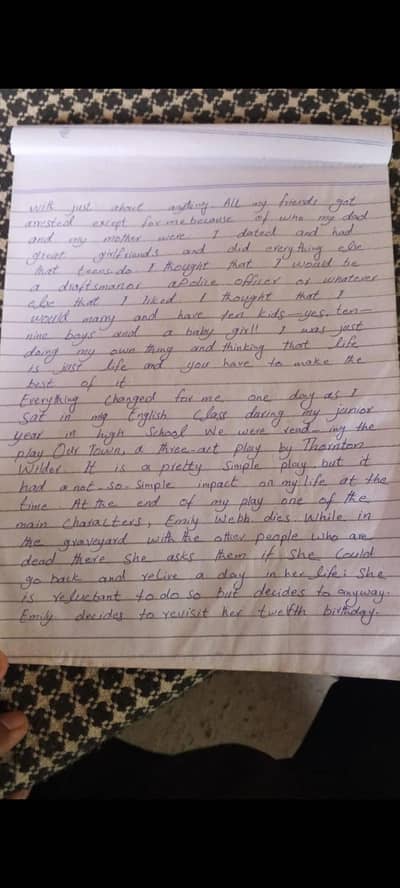 with just about anything. All my friends got
arrested except for me because of who my dad
and my mother were. I dated and had
great girlfriends and did every thing else
that teens do I thought that I would be
a draftsman or a police officer or whatever
else that I liked I thought that I
would marry and have ten kids—yes, ten—
nine boys and a baby girl! I was just
doing my own thing and thinking that life
is just life and you have to make the
best of it.
Everything changed for me one day as I
Sat in my English Class during my junior
year in high School We were read- ing the
play Our Town, a three-act play by Thornton
Wilder. It is a pretty Simple play but it
had a not-so-Simple impact on my life at the
time At the end of my play one of the
main Characters, Emily Webb dies. While in
the graveyard with the other people who are
dead there She asks them if She Could
go back and relive a day in her life; She
is reluctant to do so but decides to anyway.
Emily decides to revisit her twelfth birthday.